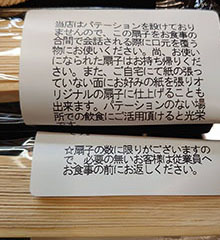 当店はパテーションを設けており
ませんので、この扇子をお食事の
合間で会話される際に口元を覆う
物にお使いください。尚、お使い
になられた扇子はお持ち帰りくだ
さい。また、ご自宅にて紙の張っ
ていない面にお好みの紙を張りオ
リジナルの扇子に仕上げることも
出来ます。パテーションのない場
所での飲食にご活用頂けると光栄
です。
☆扇子の数に限りがございますの
で、必要の無いお客様は従業員へ
お食事の前にお返しください。